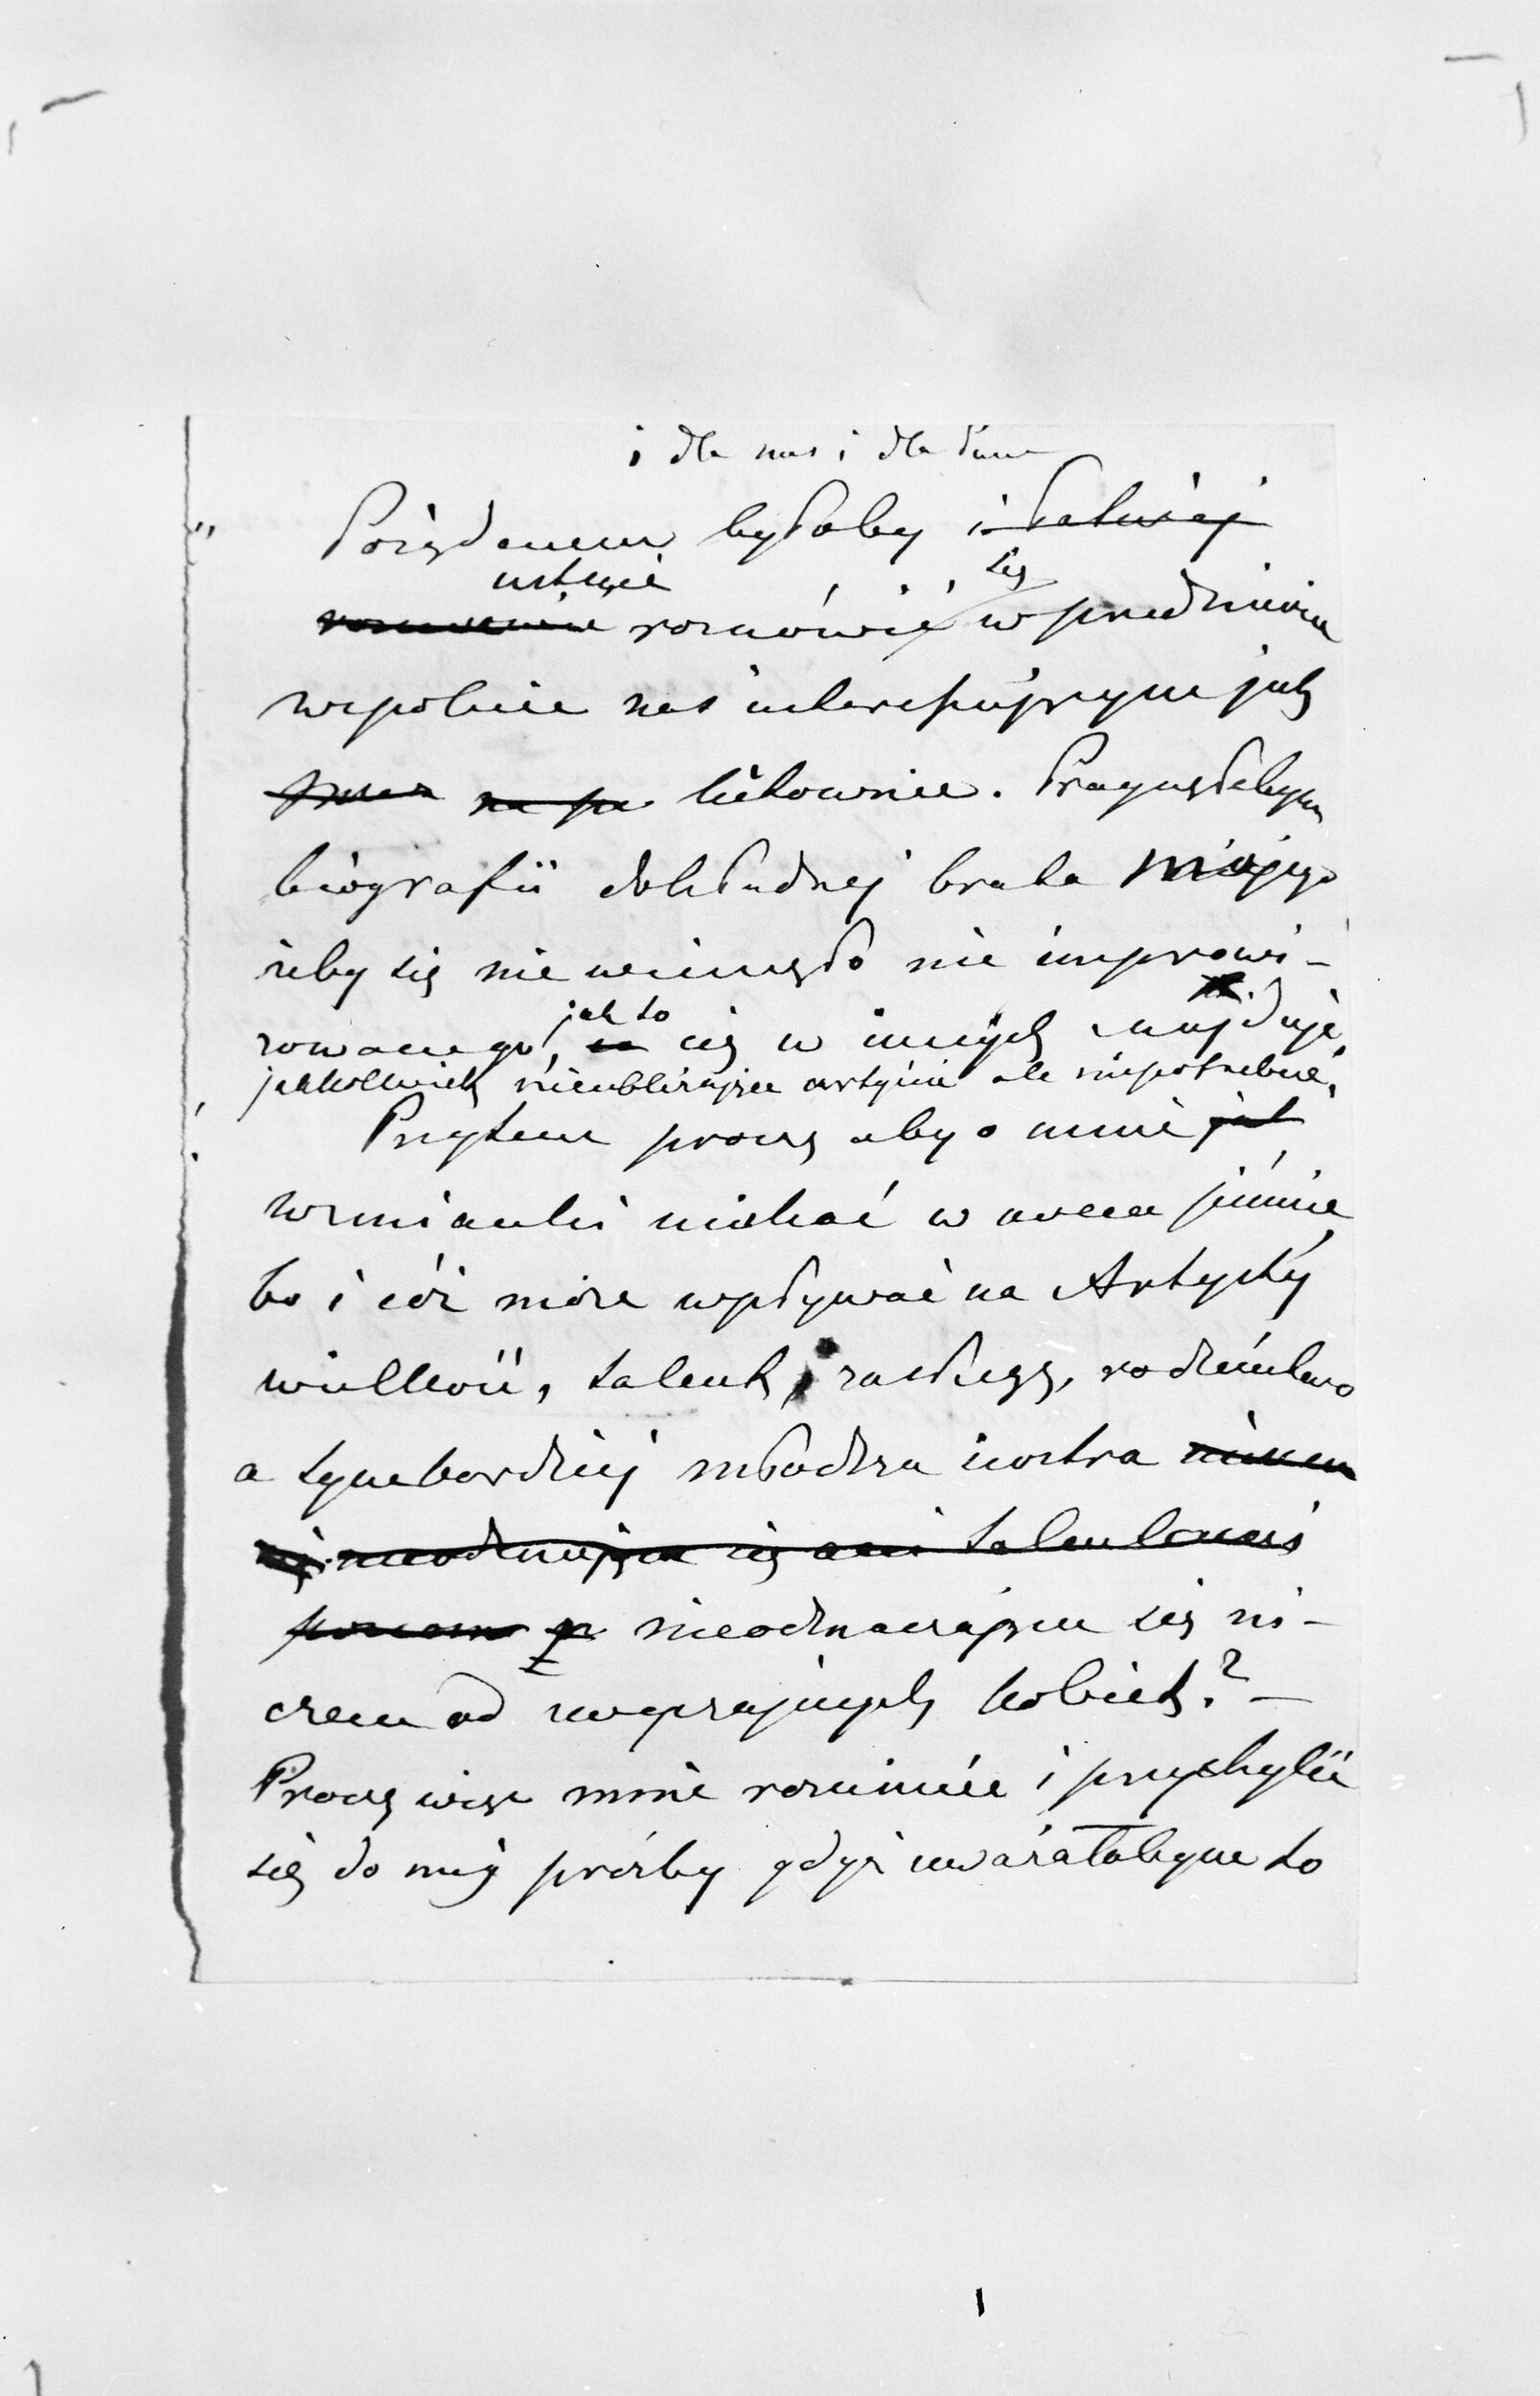 i dla nas i dla Pana
Pożądanem byłoby i łatwiej
ustnie się
rozmówić w przedmiocie
wspólnie nas interesującym jak
listownie. Pragnęłabym
biografii dokładnej brata mojego
żeby się nie wcisnęło nic improwi-
jak to
zowanego, się w innych znajduje,
jakkolwiek nieubliżające artyście ale niepotrzebne.
Przytem proszę aby o mnie jak
wzmianki niekłaść w owem piśmie
bo i cóż może wpływać na Artysty
wielkość, talent, zasługę, rodzeństwo
a tymbardziej młodsza siostra
nieodznaczająca się ni-
czem od zwyczajnych kobiet? –
Proszę więc mnie rozumieć i przychylić
się do mej prośby gdyż uważałabym to